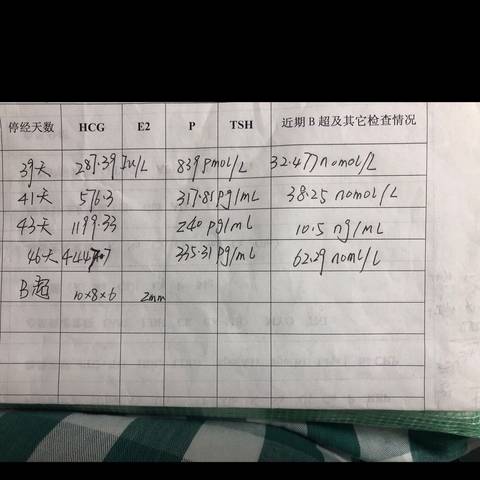 停经天数 HCG E2 P TSH 近期 B 超及其它检查情况
39天 287.39 Iu/L 839 pmol/L 32.477 nomol/L
41天 576.3 317.81 pg/mL 38.25 nomol/L
43天 1199.33 240 pg/mL 10.5 ng/mL
46天 335.31 pg/mL 62.29 noml/L
B超 10×8×6 2mm